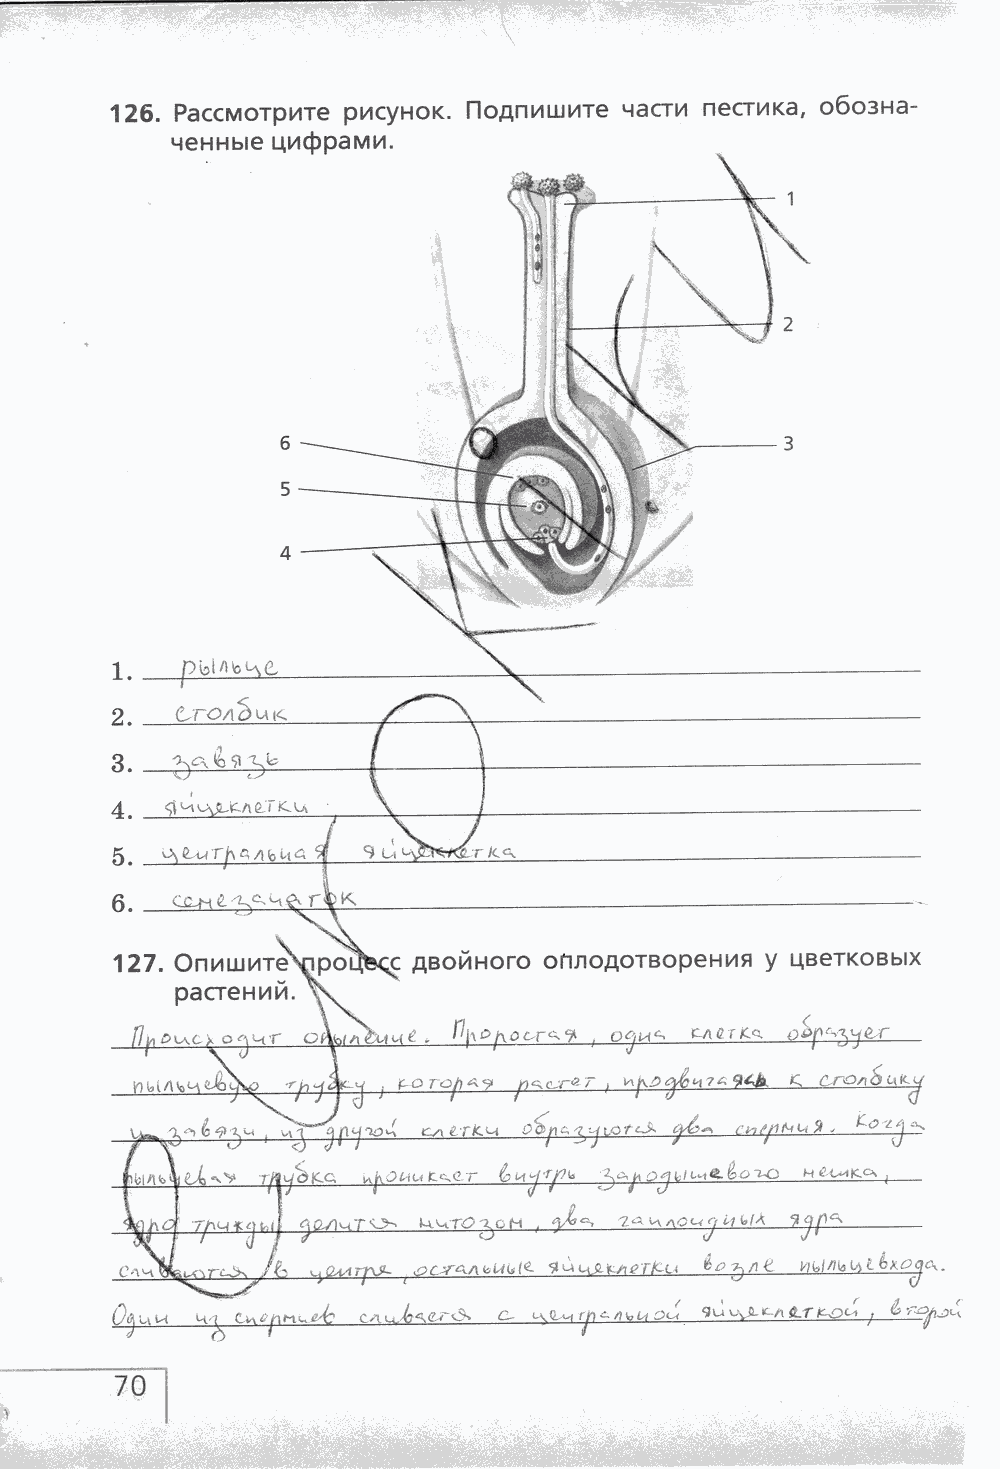 126. Рассмотрите рисунок. Подпишите части пестика, обозна-
ченные цифрами.
1
2
6
3
5
4
1. рыльце
2. столбик
3. завязь
4. яйцеклетки
5. центральная яйцеклетка
6. семезачаток
127. Опишите процесс двойного оплодотворения у цветковых
растений.
Происходит опыление. Проростая, одна клетка образует
пыльцевую трубку, которая растет, продвигаясь к столбику
и завязи, из другой клетки образуются два спермия. Когда
пыльцевая трубка проникает внутрь зародышевого мешка,
ядро трижды делится митозом, два гаплоидных ядра
сливаются в центре, остальные яйцеклетки возле пыльцевхода.
Один из спермиев сливается с центральной яйцеклеткой, второй
70